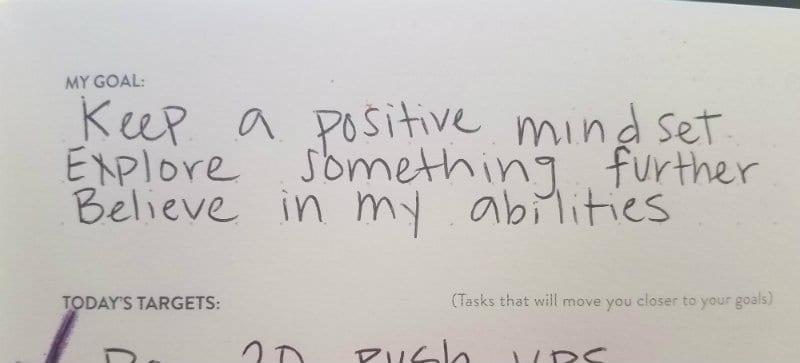 MY GOAL:
Keep a positive mindset
Explore something further
Believe in my abilities
TODAY'S TARGETS: (Tasks that will move you closer to your goals)
Do 20 push ups